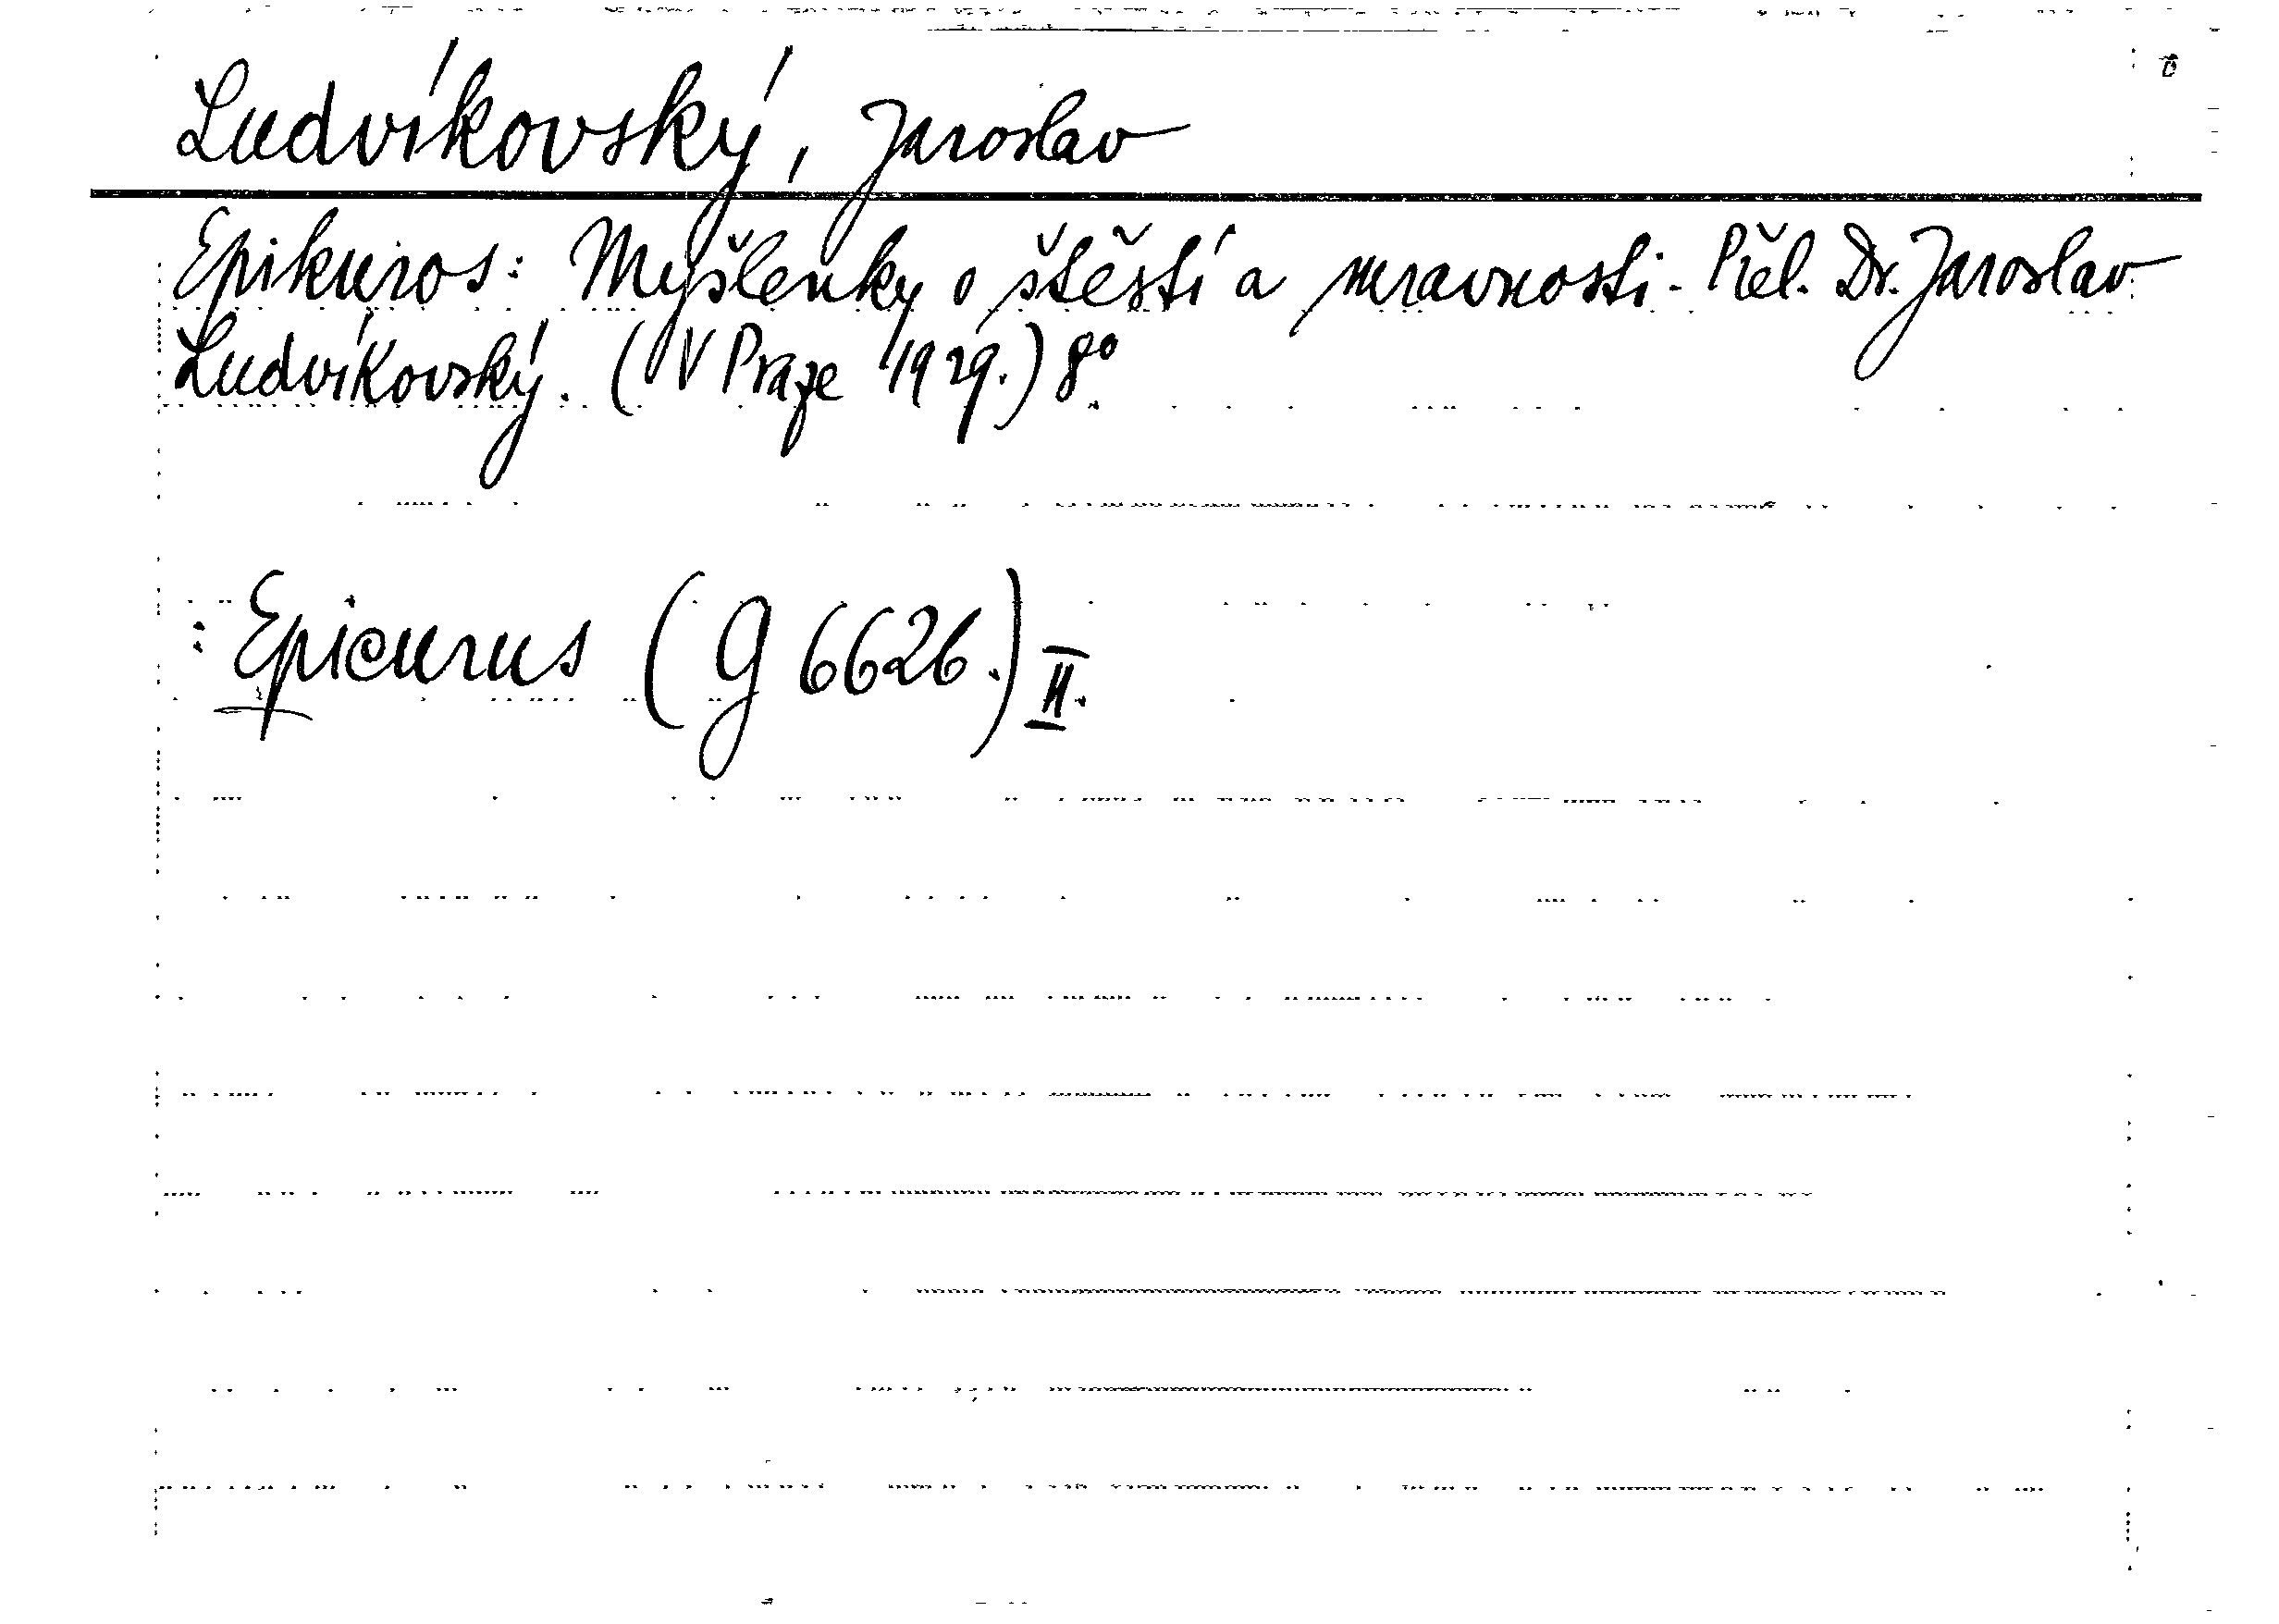 Ludvíkovský, Jaroslav
Epikuros: Myšlenky o štěstí a mravnosti. Přel. Dr. Jaroslav
Ludvíkovský. (V Praze 1929.) 8°
: Epicurus (G 6626.) II.